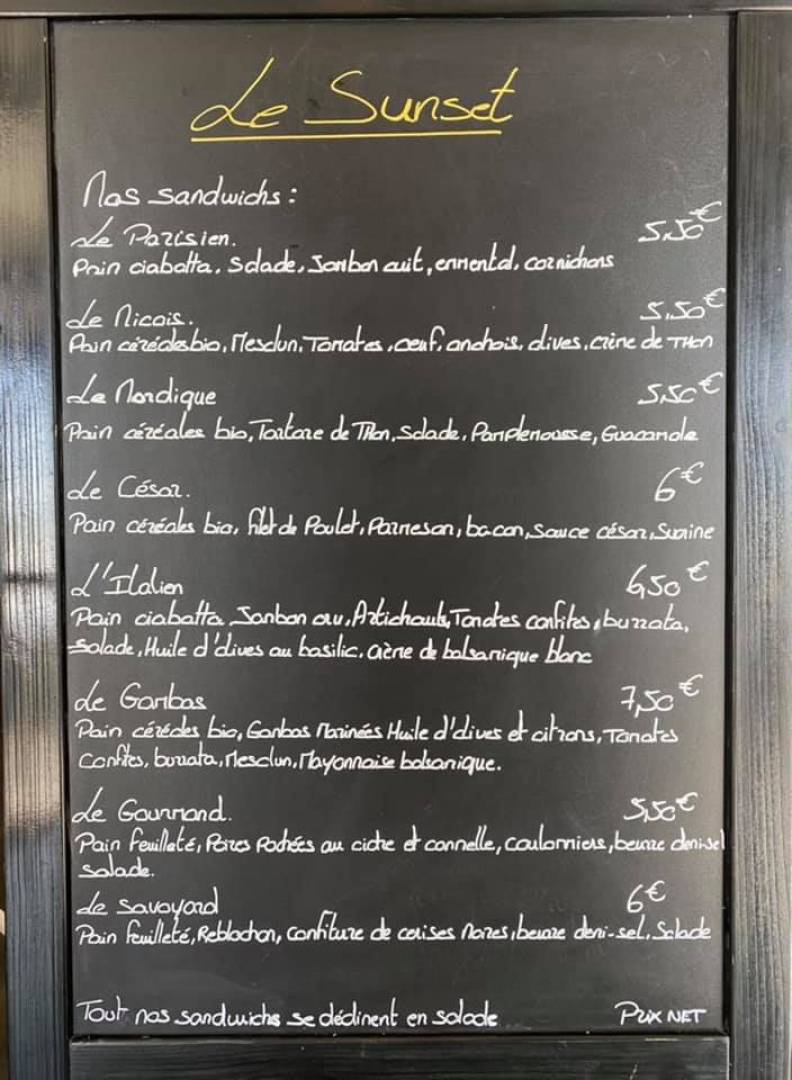 Le Sunset
Nos sandwichs :
Le Parisien. 5,50€
Pain ciabatta, Salade, Jambon cuit, emmental, cornichons
Le Nicois. 5,50€
Pain céréales bio, Mesclun, Tomates, oeuf, anchois, olives, crème de THon
Le Nordique 5,50€
Pain céréales bio, Tartare de THon, Salade, Pamplemousse, Guacamole
Le César. 6€
Pain céréales bio, filet de Poulet, Parmesan, bacon, Sauce césar, Sucrine
L'Italien 6,50€
Pain ciabatta, Jambon cru, Artichauts, Tomates confites, burrata,
Salade, Huile d'olives au basilic, crème de balsamique blanc
Le Gambas 7,50€
Pain céréales bio, Gambas Marinées Huile d'olives et citrons, Tomates
Confites, burrata, Mesclun, Mayonnaise balsamique.
Le Gourmand. 5,50€
Pain feuilleté, Poires Pochées au cidre et cannelle, Coulomniers, beurre demi-sel
Salade.
Le Savoyard 6€
Pain feuilleté, Reblochon, Confiture de cerises Noires, beurre demi-sel, Salade
Tout nos sandwichs se déclinent en salade PRIX NET